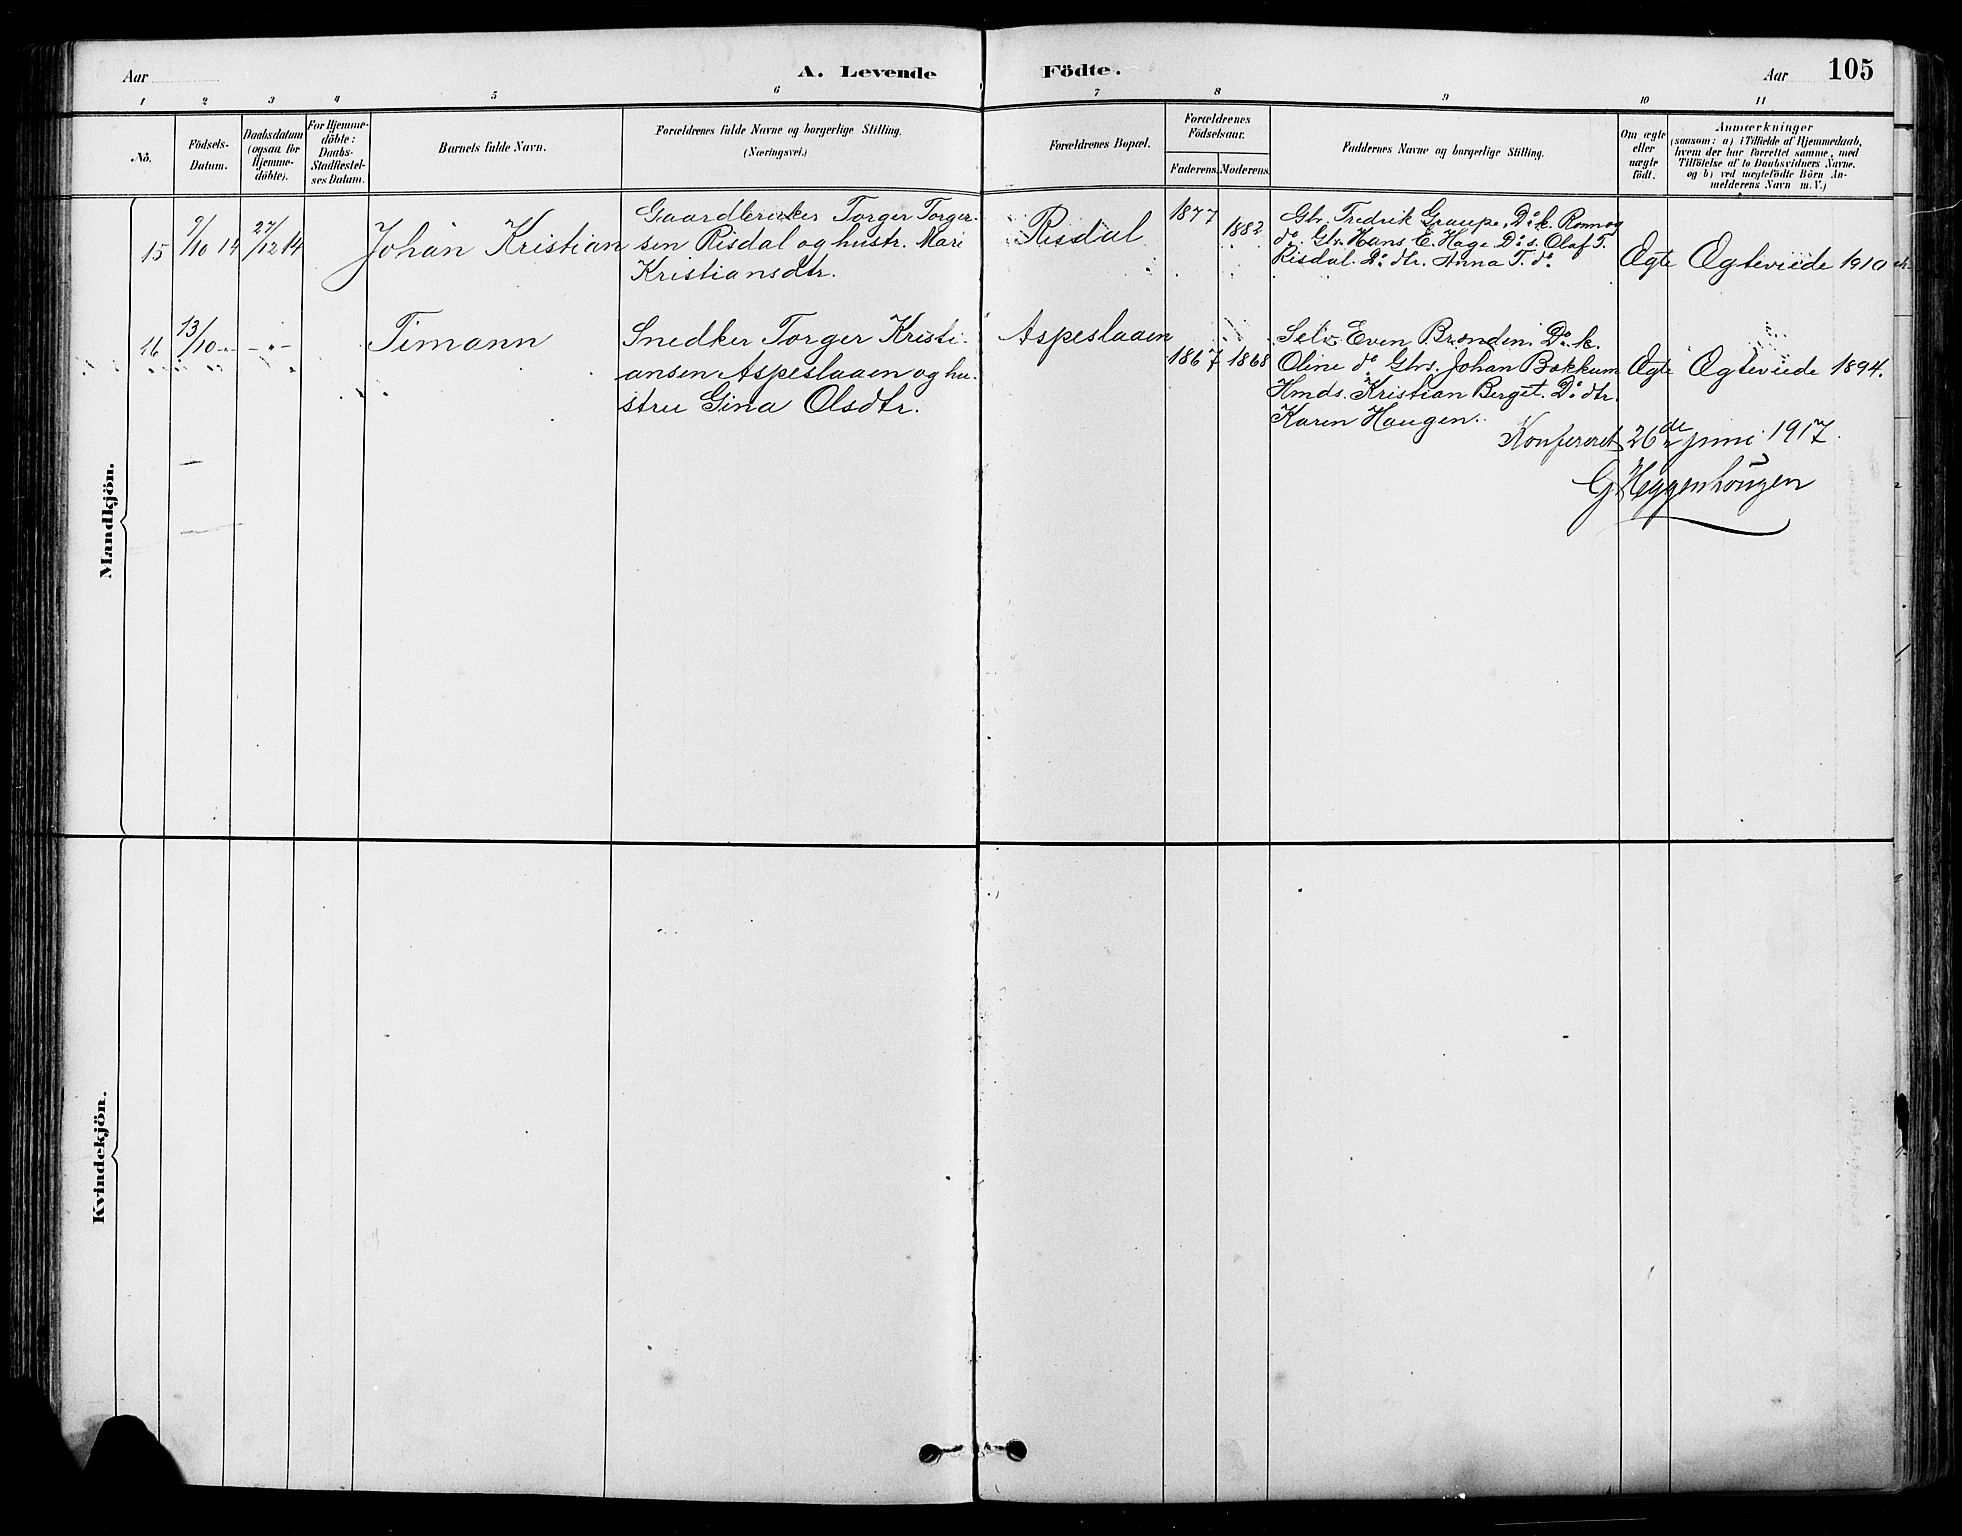 Aar
A. Levende
Födte.
Aar
105
1 2 3 4 5 6 7 8 9 10 11
No.
Födsels-
Datum.
Daabsdatum
(ogsaa for
Hjemme-
döbte).
For Hjemme-
döbte:
Daabs-
Stadfæstel-
ses Datum.
Barnets fulde Navn.
Forældrenes fulde Navne og borgerlige Stilling.
(Næringsvei.)
Forældrenes Bopæl.
Forældrenes
Födselsaar.
Faderens. Moderens.
Faddernes Navne og borgerlige Stilling.
Om ægte
eller
uægte
født.
Anmærkninger
(saasom: a) i Tilfælde af Hjemmedaab,
hvem der har forrettet samme, med
Tilföielse af to Daabsvidners Navne.
og b) ved uægtefödte Börn An-
melderens Navn m. V.)
Mandkjön.
15
9/10 14
27/12 14
Johan Kristian
Gaardbruker Torger Torger-
sen Risdal og hustr. Mari
Kristiansdtr.
Risdal
1877
1882
Gbr. Fredrik Graupe, Do k. Ronnog
do. Gbr. Hans E. Hage Do s. Olaf T.
Risdal. Do dtr. Anna T. do
Ægte
Ægteviede 1910
16
13/10 -
- " -
Timann
Snedker Torger Kristi-
ansen Aspeslaaen og hu-
stru Gina Olsdtr.
Aspeslaaen
1867
1868
Selv. Even Brænden. Do k.
Oline do Gbrs. Johan Bakkum
Hmds. Kristian Berget. Do dtr.
Karen Haugen.
Ægte
Ægteviede 1894.
Konfereret 26de juni 1917.
G Heggenhougen
Kvindekjön.